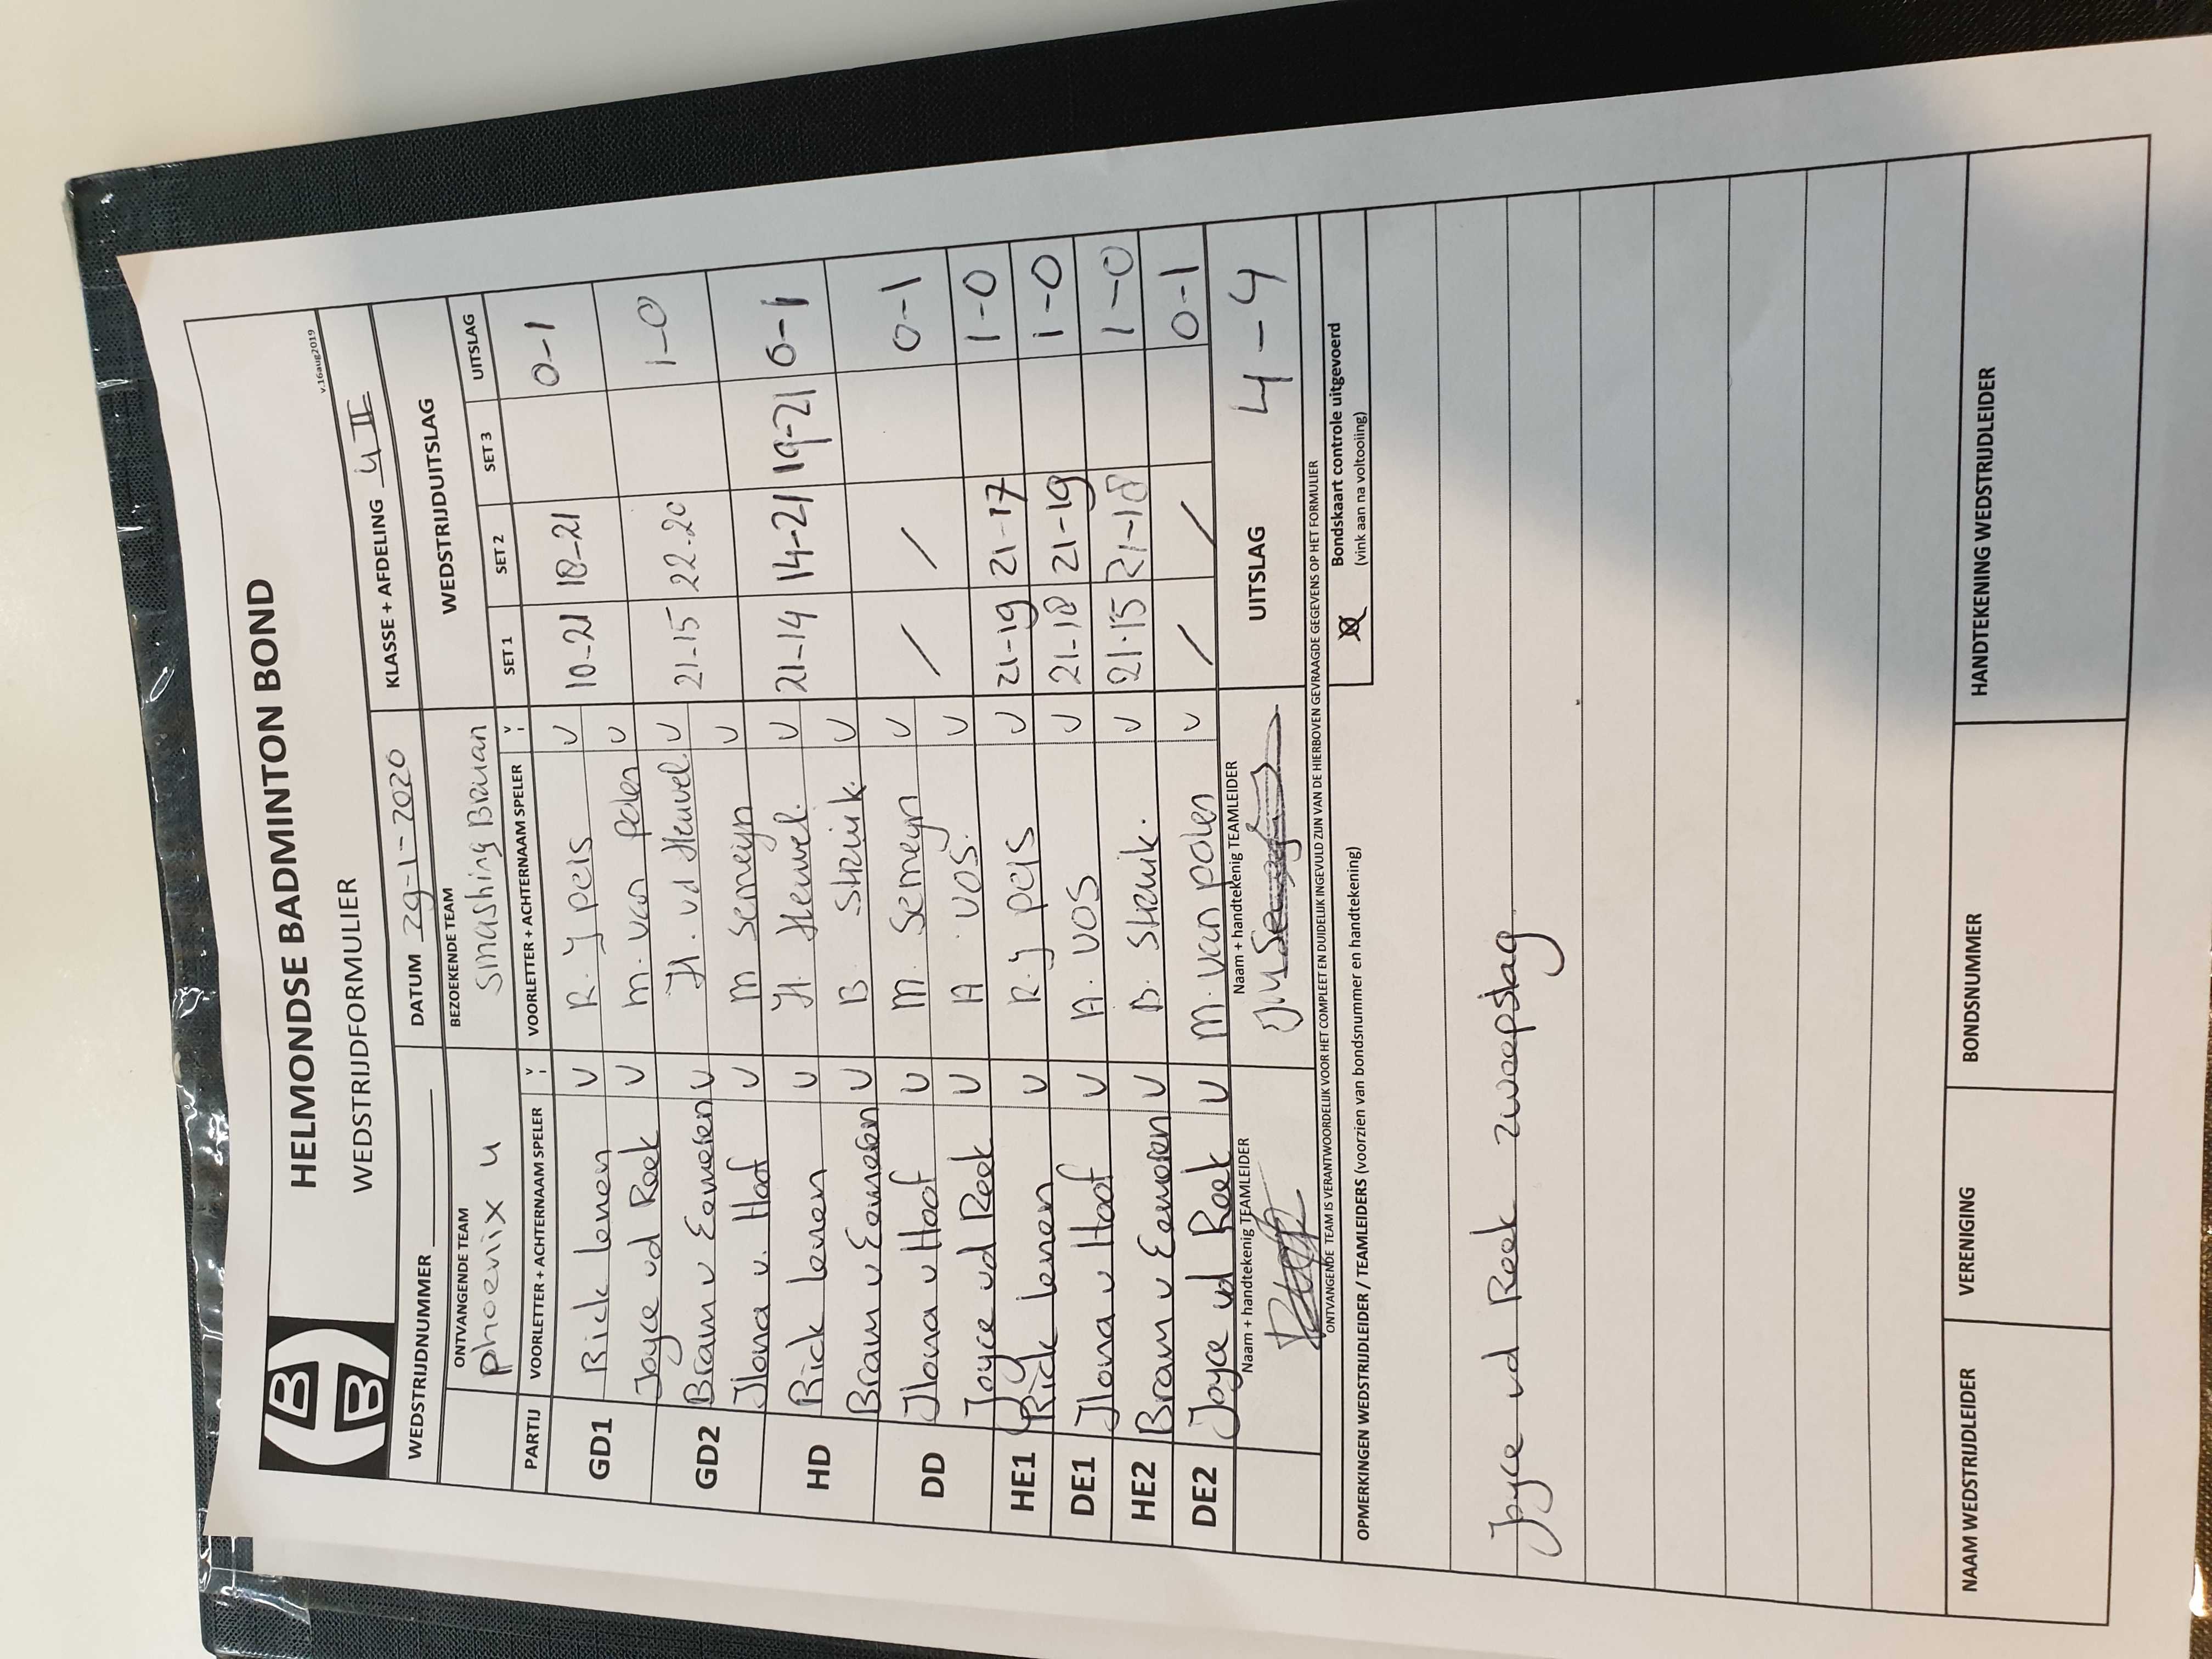 HELMONDSE BADMINTON BOND
WEDSTRIJDFORMULIER
v.16aug2019
WEDSTRIJDNUMMER DATUM 29-1-2020 KLASSE + AFDELING 4 II
ONTVANGENDE TEAM BEZOEKENDE TEAM WEDSTRIJDUITSLAG
Phoenix 4 Smashing Brauan
PARTIJ VOORLETTER + ACHTERNAAM SPELER V VOORLETTER + ACHTERNAAM SPELER V SET 1 SET 2 SET 3 UITSLAG
GD1 Rick Lenen V R. J pels V 10-21 18-21 0-1
Joyce vd Reek V M. van polen V
GD2 Bram v Eemeren V H. vd Heuvel. V 21-15 22-20 1-0
Ilona v. Hoof V M Semeijn V
HD Rick Lenen V H. Heuvel. V 21-14 14-21 19-21 0-1
Bram v Eemeren V B Struik. V
DD Ilona v Hoof V M. Semeijn V / / 0-1
Joyce vd Reek V A. VOS. V
HE1 Rick Lenen V R.J pels V 21-19 21-17 1-0
DE1 Ilona v Hoof V A. VOS V 21-18 21-19 1-0
HE2 Bram v Eemeren V B. Struik. V 21-15 21-18 1-0
DE2 Joyce vd Reek V M. van polen V / / 0-1
Naam + handtekenig TEAMLEIDER Naam + handtekenig TEAMLEIDER UITSLAG 4-4
ONTVANGENDE TEAM IS VERANTWOORDELIJK VOOR HET COMPLEET EN DUIDELIJK INGEVULD ZIJN VAN DE HIERBOVEN GEVRAAGDE GEGEVENS OP HET FORMULIER
OPMERKINGEN WEDSTRIJDLEIDER / TEAMLEIDERS (voorzien van bondsnummer en handtekening)
Bondskaart controle uitgevoerd
(vink aan na voltooiing)
Joyce vd Reek zweepslag
NAAM WEDSTRIJDLEIDER VERENIGING BONDSNUMMER HANDTEKENING WEDSTRIJDLEIDER